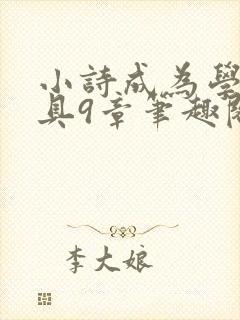 小詩成為學
具9章筆趣閱
李大娘